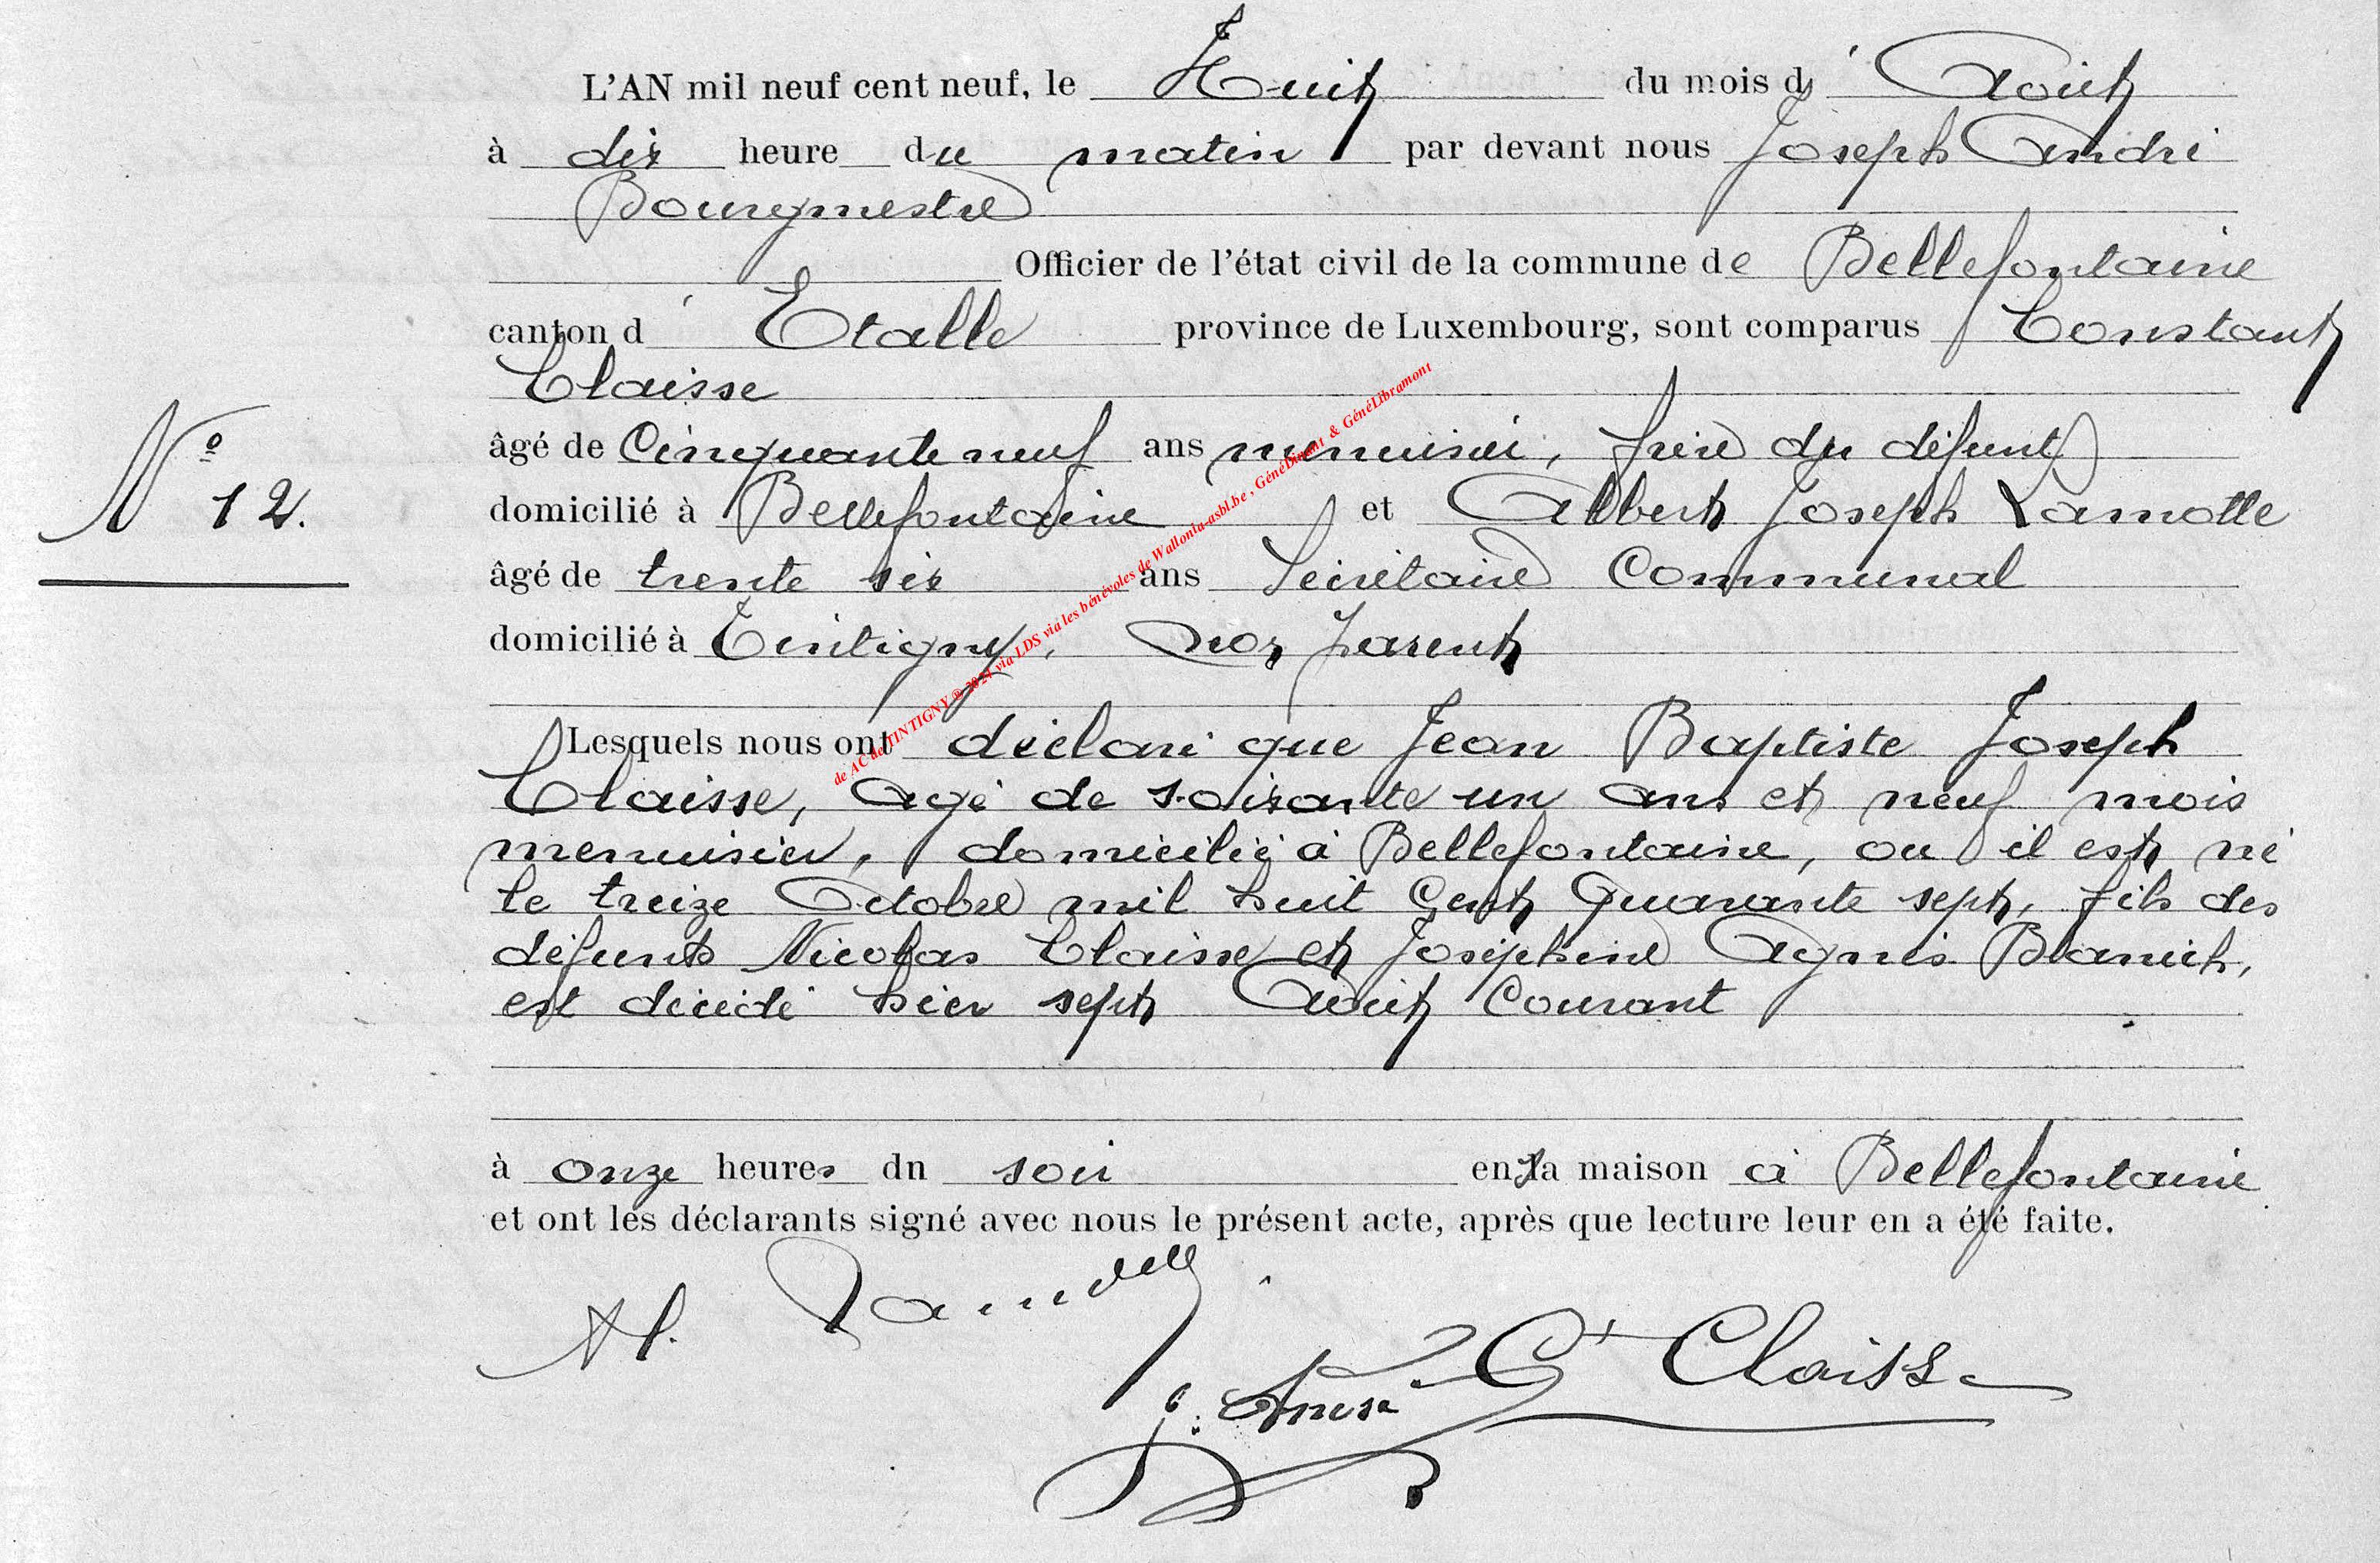 L'AN mil neuf cent neuf, le Huit du mois d' Août
à dix heure du matin par devant nous Joseph André
Bourgmestre
Officier de l'état civil de la commune de Bellefontaine
canton d' Etalle province de Luxembourg, sont comparus Constant
Claisse
âgé de Cinquante neuf ans menuisier, frère du défunt
N° 12.
domicilié à Bellefontaine et Albert Joseph Lamotte
âgé de trente six ans Secrétaire Communal
domicilié à Tintigny, non parent
Lesquels nous ont déclaré que Jean Baptiste Joseph
Claisse, agé de soixante un ans et neuf mois
menuisier, domicilié à Bellefontaine, ou il est né
le treize Octobre mil huit Cent Quarante sept, fils des
défunts Nicolas Claisse et Joséphine Agnès
est décédé hier sept Août Courant
à onze heures du soir en sa maison à Bellefontaine
et ont les déclarants signé avec nous le présent acte, après que lecture leur en a été faite.
Ct Claisse
de AC de TINTIGNY ® 2024 via LDS via les bénévoles de Wallonia-asbl.be, GénéDinant & GénéLibramont